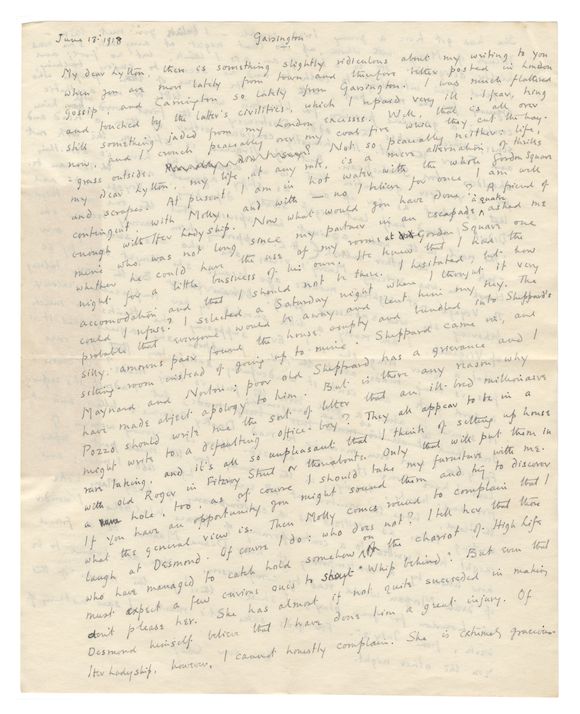 June 13: 1918 Garsington
My dear Lytton, there is something slightly ridiculous about my writing to you
when you are more lately from town and therefore better posted in London
gossip, and Carrington so lately from Garsington. I was much flattered
and touched by the latter's civilities, which I repaid very ill I fear, being
still something jaded from my London excesses. Well, that is all over
now, and I crouch peaceably over my coal-fire while they cut the hay-
grass outside. Not so peaceably neither: life,
my dear Lytton, my life, at any rate, is a mere alternation of thrills
and scrapes. At present I am in hot water with the whole Gordon Square
contingent, with Molly, and with — no I believe for once I am well
enough with Her Ladyship. Now what would you have done? A friend of
mine who was not long since my partner in an escapade à quatre asked me
whether he could have the use of my rooms at Gordon Square one
night for a little business of his own. He knew that I had the
accomodation and that I should not be there. I hesitated, but how
could I refuse? I selected a Saturday night when I thought it very
probable that everyone would be away and lent him my key. The
silly amorous pair found the house empty and bundled into Sheppard's
sitting-room instead of going up to mine: Sheppard came in, and
Maynard and Norton: poor old Sheppard has a grievance and I
have made abject apology to him. But is there any reason why
Pozzo should write me the sort of letter that an ill-bred millionaire
might write to a defaulting office-boy? They all appear to be in a
rare taking, and it's all so unpleasant that I think of setting up house
with old Roger in Fitzroy Street or thereabouts. Only that will put them in
a hole, too, as of course I should take my furniture with me.
If you have an opportunity you might sound them and try to discover
what the general view is. Then Molly comes round to complain that I
laugh at Desmond. Of course I do: who does not? I tell her that those
who have managed to catch hold somehow on the chariot of High Life
must expect a few envious ones to shout "Whip behind": But even that
don't please her. She has almost if not quite succeeded in making
Desmond himself believe that I have done him a great injury. Of
Her Ladyship, however, I cannot honestly complain. She is extremely gracious